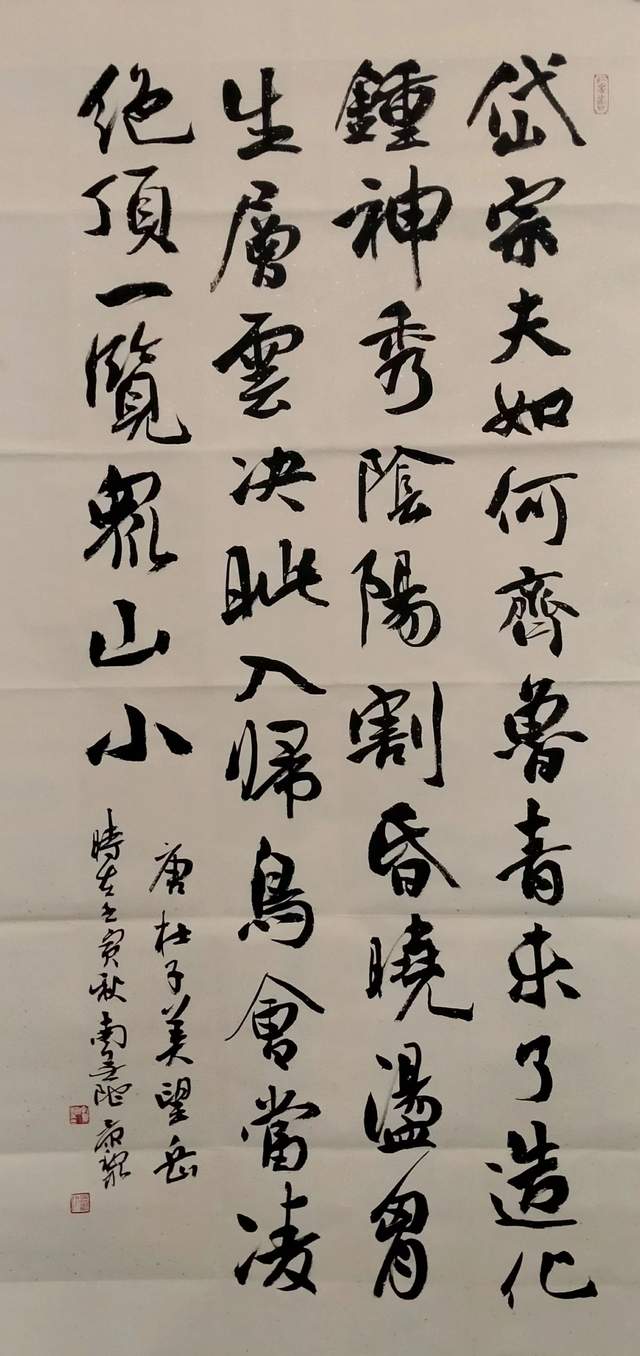 岱宗夫如何齊魯青未了造化
鍾神秀陰陽割昏曉盪胷
生層雲決眦入歸鳥會當凌
绝頂一覽眾山小
唐杜子美望岳
時在壬寅秋南